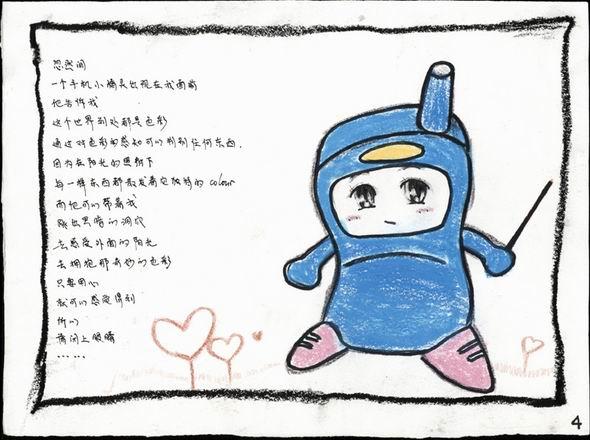 忽然间
一个手机小精灵出现在我面前
他告诉我
这个世界到处都是色彩
通过对色彩和感知可以判别任何东西.
因为在阳光的照射下
每一样东西都散发着它独特的colour
而他可以带着我
跳出黑暗的洞穴
去感受外面的阳光
去拥抱那奇妙的色彩
只要用心
就可以感觉得到
所以
请闭上眼睛
……
4